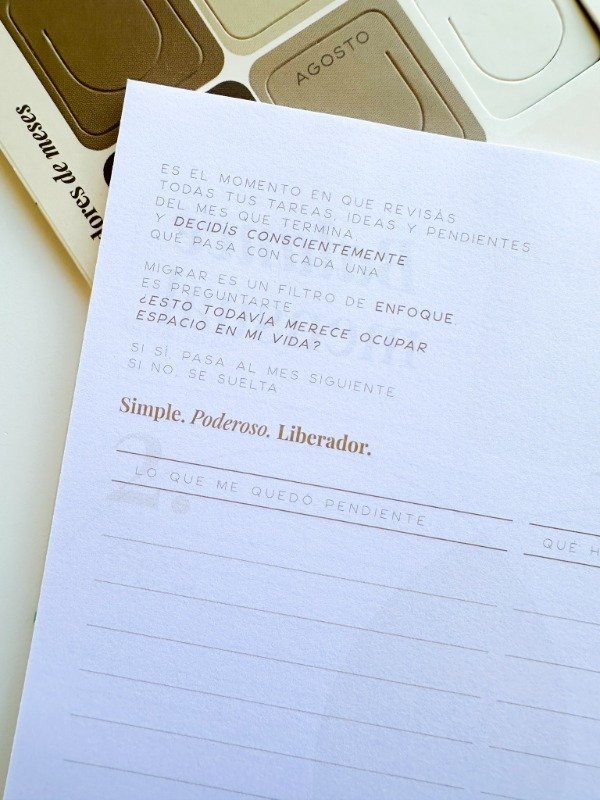 AGOSTO
dores de meses
ES EL MOMENTO EN QUE REVISÁS
TODAS TUS TAREAS, IDEAS Y PENDIENTES
DEL MES QUE TERMINA
Y DECIDÍS CONSCIENTEMENTE
QUÉ PASA CON CADA UNA
MIGRAR ES UN FILTRO DE ENFOQUE.
ES PREGUNTARTE
¿ESTO TODAVÍA MERECE OCUPAR
ESPACIO EN MI VIDA?
SI SÍ, PASA AL MES SIGUIENTE
SI NO, SE SUELTA
Simple. Poderoso. Liberador.
LO QUE ME QUEDÓ PENDIENTE
QUÉ H